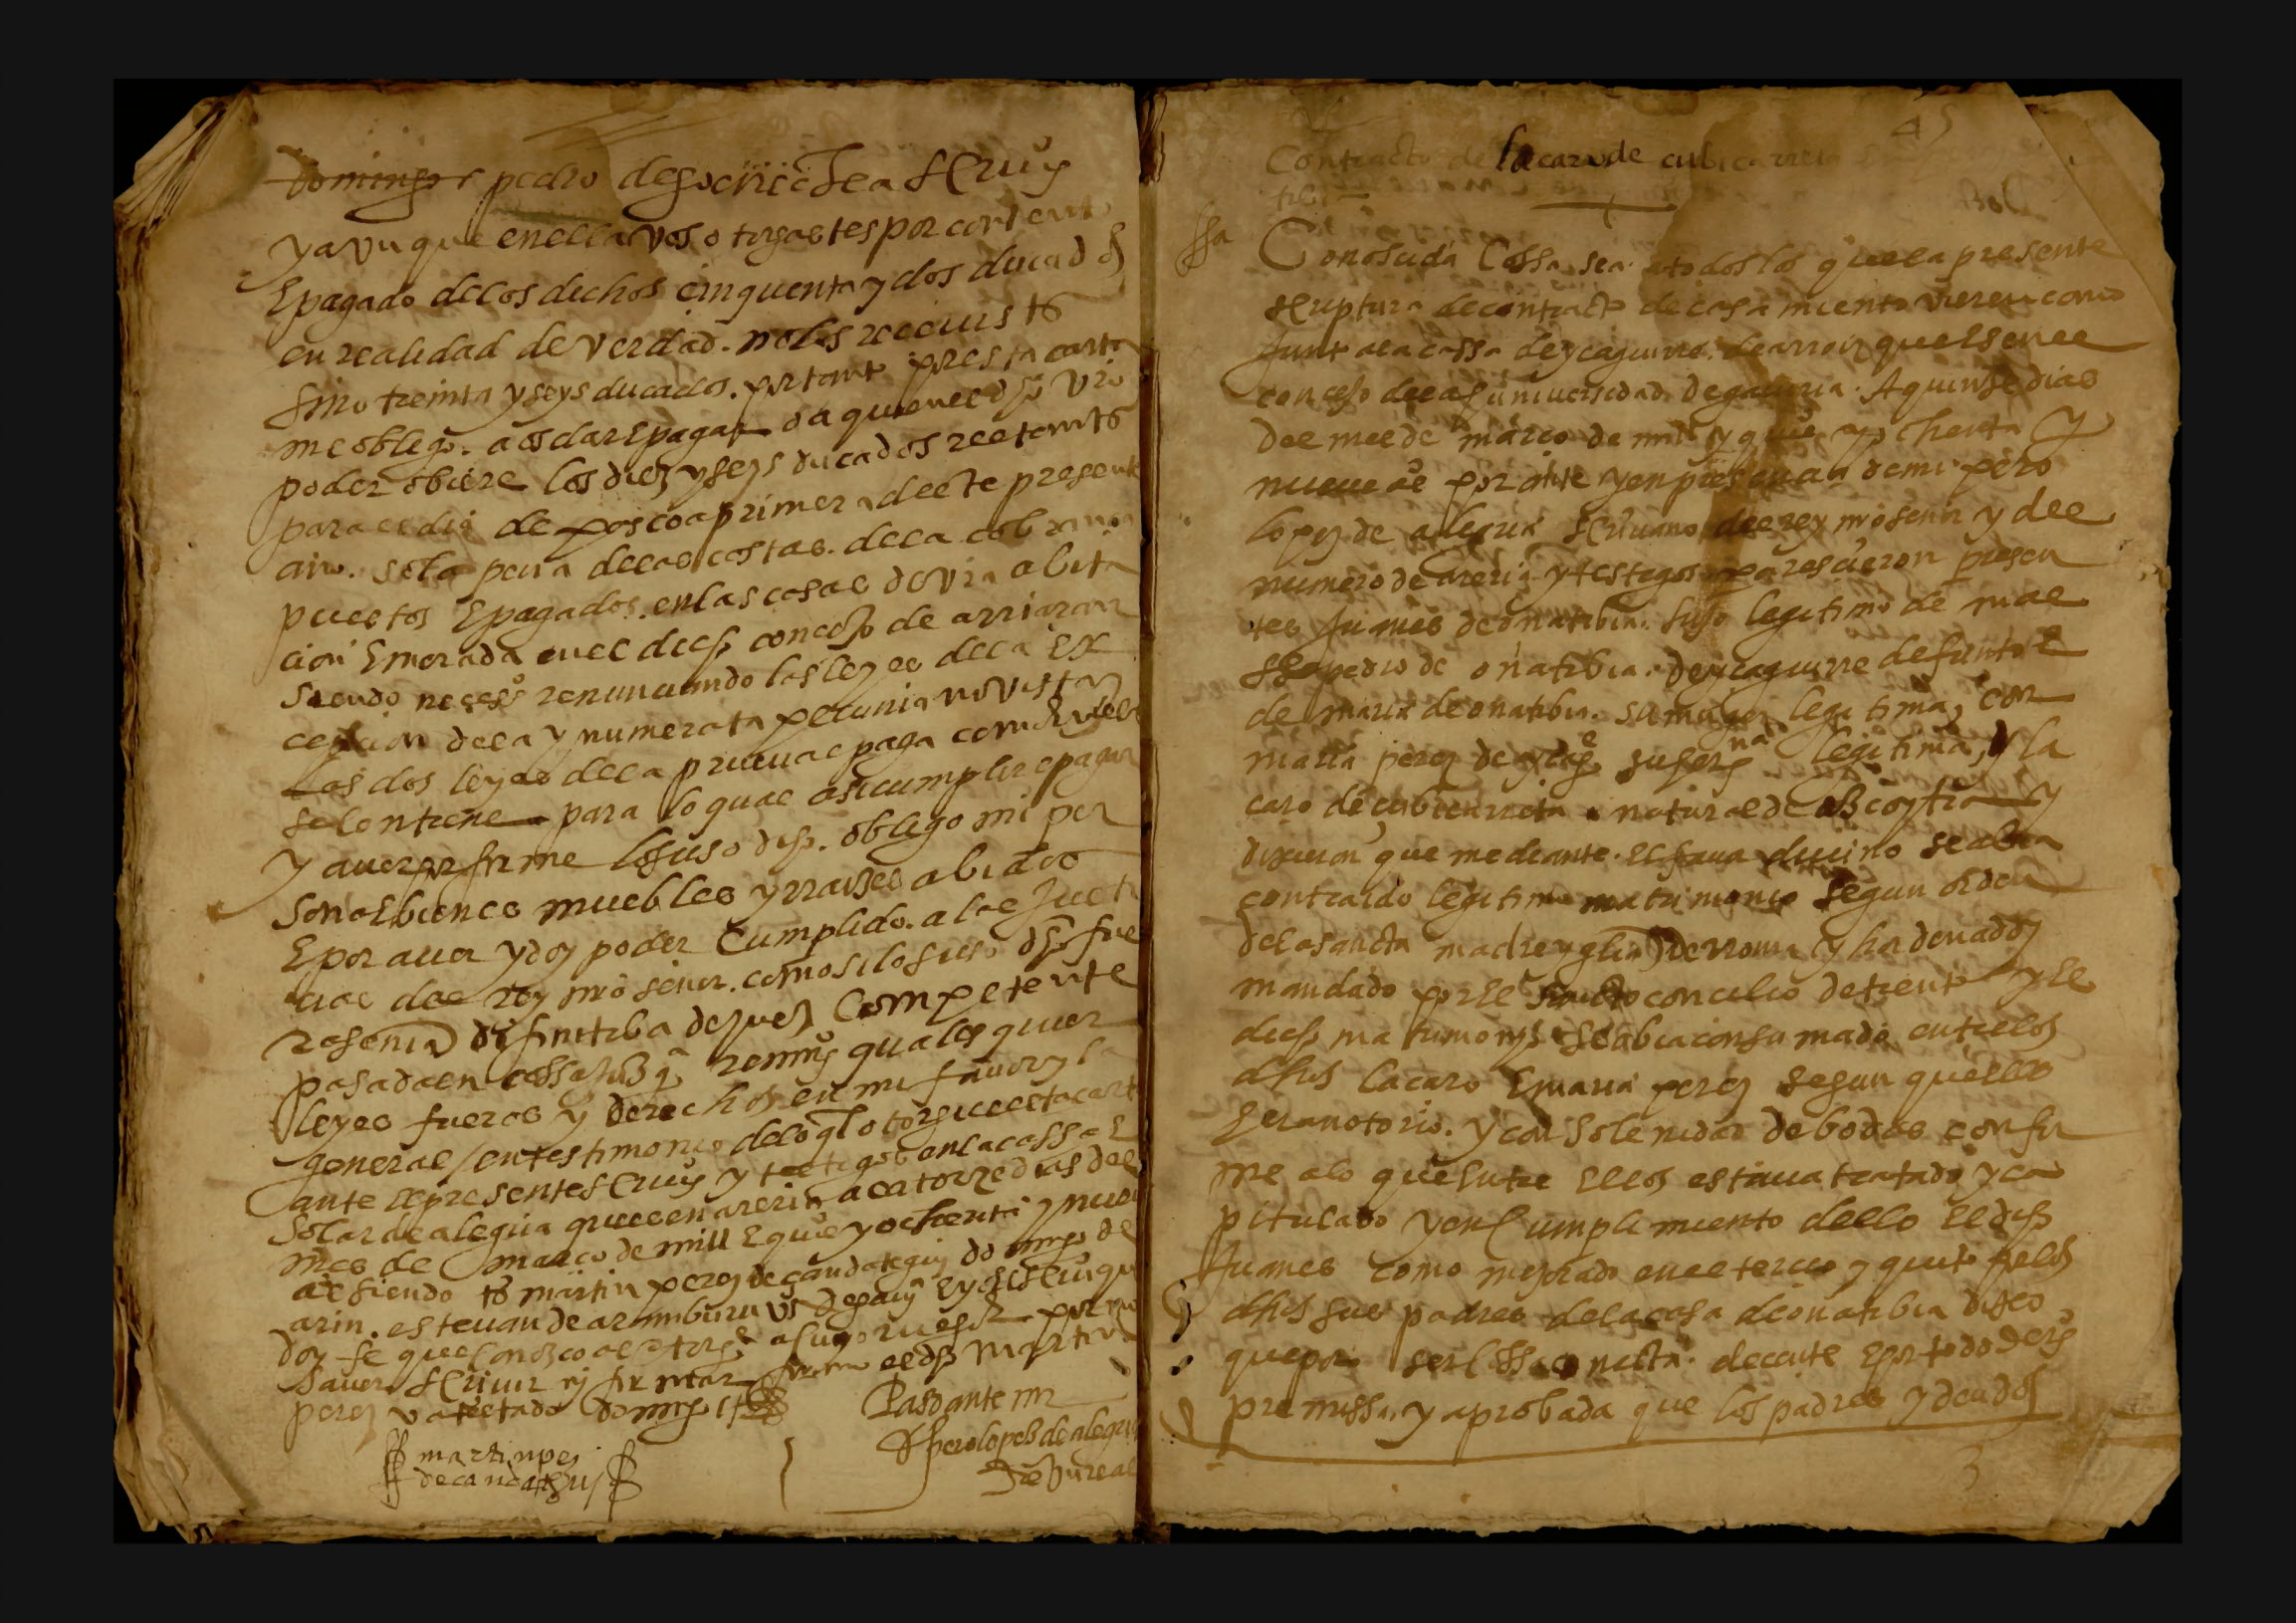 pedro de
y avnque en ella vos otorgastes por contento
E pagado de los dichos cinquenta y dos ducados
en realidad de verdad. no los rreceuistes
sino treinta y seys ducados. por tanto por esta carta
me obligo. a os dar E pagar o a quien el dho vro
poder obiere los diez y seys ducados restantes
para el dia de pascoa primera deste presente
año. so la pena de las costas. de la cobrança
puestos E pagados. en las casas de vra abita
cion E morada en el dho concejo de arriaran
siendo necesso renunciando las leyes de la ex
cepcion de la ynnumerata pecunia no vista
las dos leyes de la prueua e paga como en ellas
se contiene para lo qual asi cumplir e pagar
y auer por firme lo suso dho. obligo mi per
sona E bienes muebles y rrayzes abidos
E por auer y doy poder cumplido. a las justi
cias del rey nro señor. como si lo suso dho fue
se sentencia difinitiba de juez competente
pasada en cossa juzgda renunçio quales quier
leyes fueros y derechos en mi fauor y la
general / en testimonio de lo ql otorgue esta carta
ante el presente scriuo y testigos en la cassa E
solar de alegria que es enareria a catorze dias del
mes de março de mill E quios y ochenta y nueue
as siendo tos martin perez de candategui domingo de
arin. esteuan de aramburu vs de gauia E yo el scriuo que
doy fe que conozco al otorge a su ruego por no
sauer scriuir ny firmar firmo el dho martin
perez va testado domingo
Paso ante mi
martin perez
de candategui
Pero lopez de alegria

45
Contracto de lacaro de cubicurreta
Conoscida cossa sea a todos los que la presente
scriptura de contracto de casamiento vieren como
junto a la cassa de ycaguirre. de arroy que es en el
concejo de la universidad de gauiria. A quinze dias
del mes de março de mill y quios y ochenta y
nueue as por ante y en presencia de mi pero
lopez de alegria scriuano del rey nro señor y del
numero de areria y testigos parescieron presen
tes Juanes de onatibia. hijo legitimo de mae
sse pedro de onatibia. de ycaguirre defunto E
de maria de onatibia. su muger legitima, con
maria perez de ycage su hermna legitima, y la
caro de cubicurreta natural de azcoytia y
dixieron que mediante. el fauor diuino se abia
contraido legitimo matrimonio segun orden
de la sancta madre yglia de rroma y hordenado y
mandado por el sancto concilio de trento y el
dicho matrimonio se abia consumado entre los
dhos lacaro E maria perez segun que ello
hera notorio. y con solenidad de bodas confor
me a lo que entre ellos estaua tratado y ca
pitulado y en cumplimiento dello el dho
Juanes como mejorado en el tercio y quinto por los
dhos sus padres de la casa de onatibia dixo
que por ser cossa onesta. decente E por todo dero
premissa. y aprobada que los padres y deudos